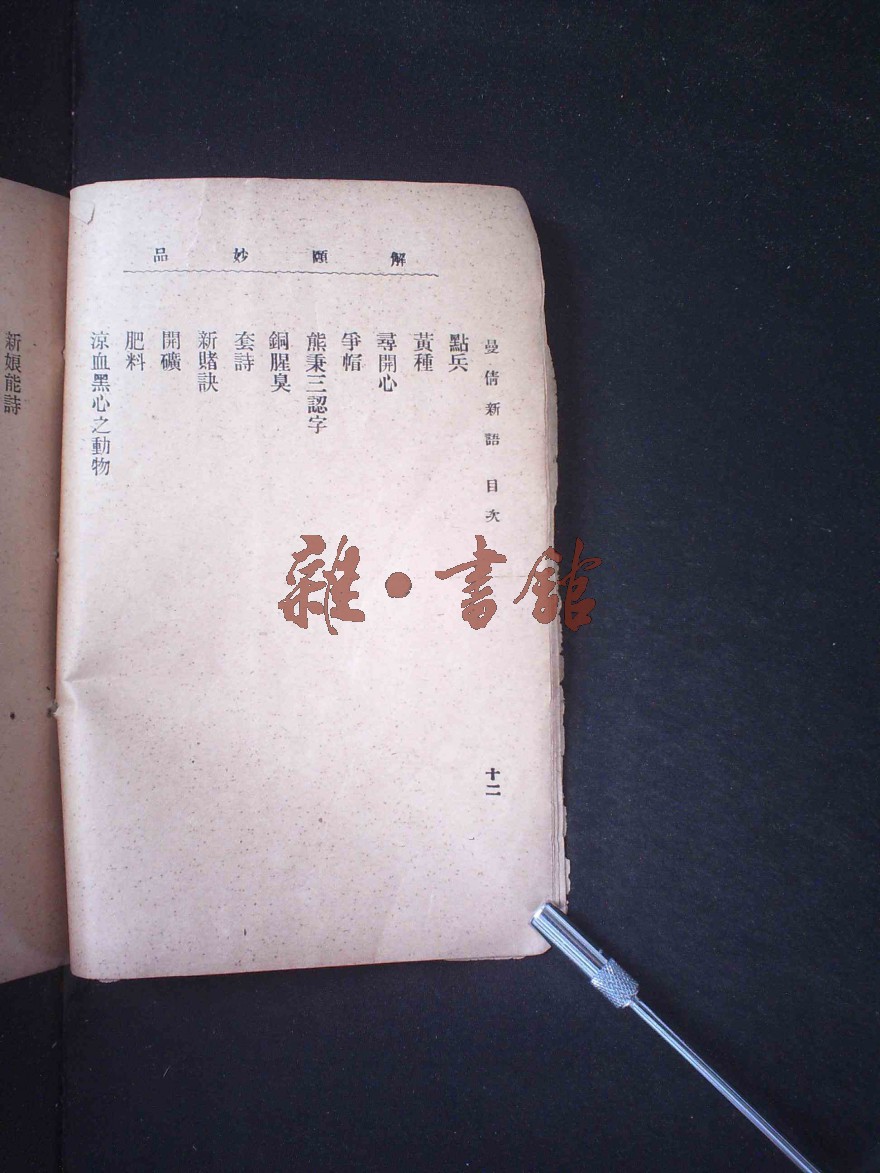 解頤妙品
曼倩新語 目次
十二
點兵
黃種
尋開心
爭帽
熊秉三認字
銅腥臭
套詩
新賭訣
開礦
肥料
涼血黑心之動物
新娘能詩
雜·書館